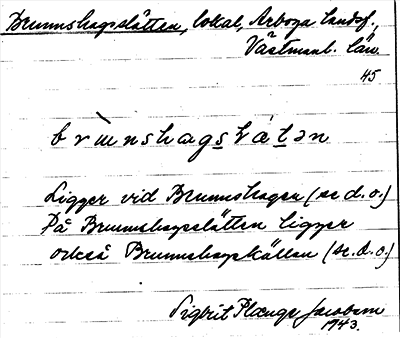 Brunnshagsslätten, lokal, Arboga landsf.,
Västmanl. län
45
Ligger vid Brunnshagen (se d.o.)
På Brunnshagsslätten ligger
också Brunnshagskällan (se.d.o.)
Sigbrit Plænge Jacobson
1943.